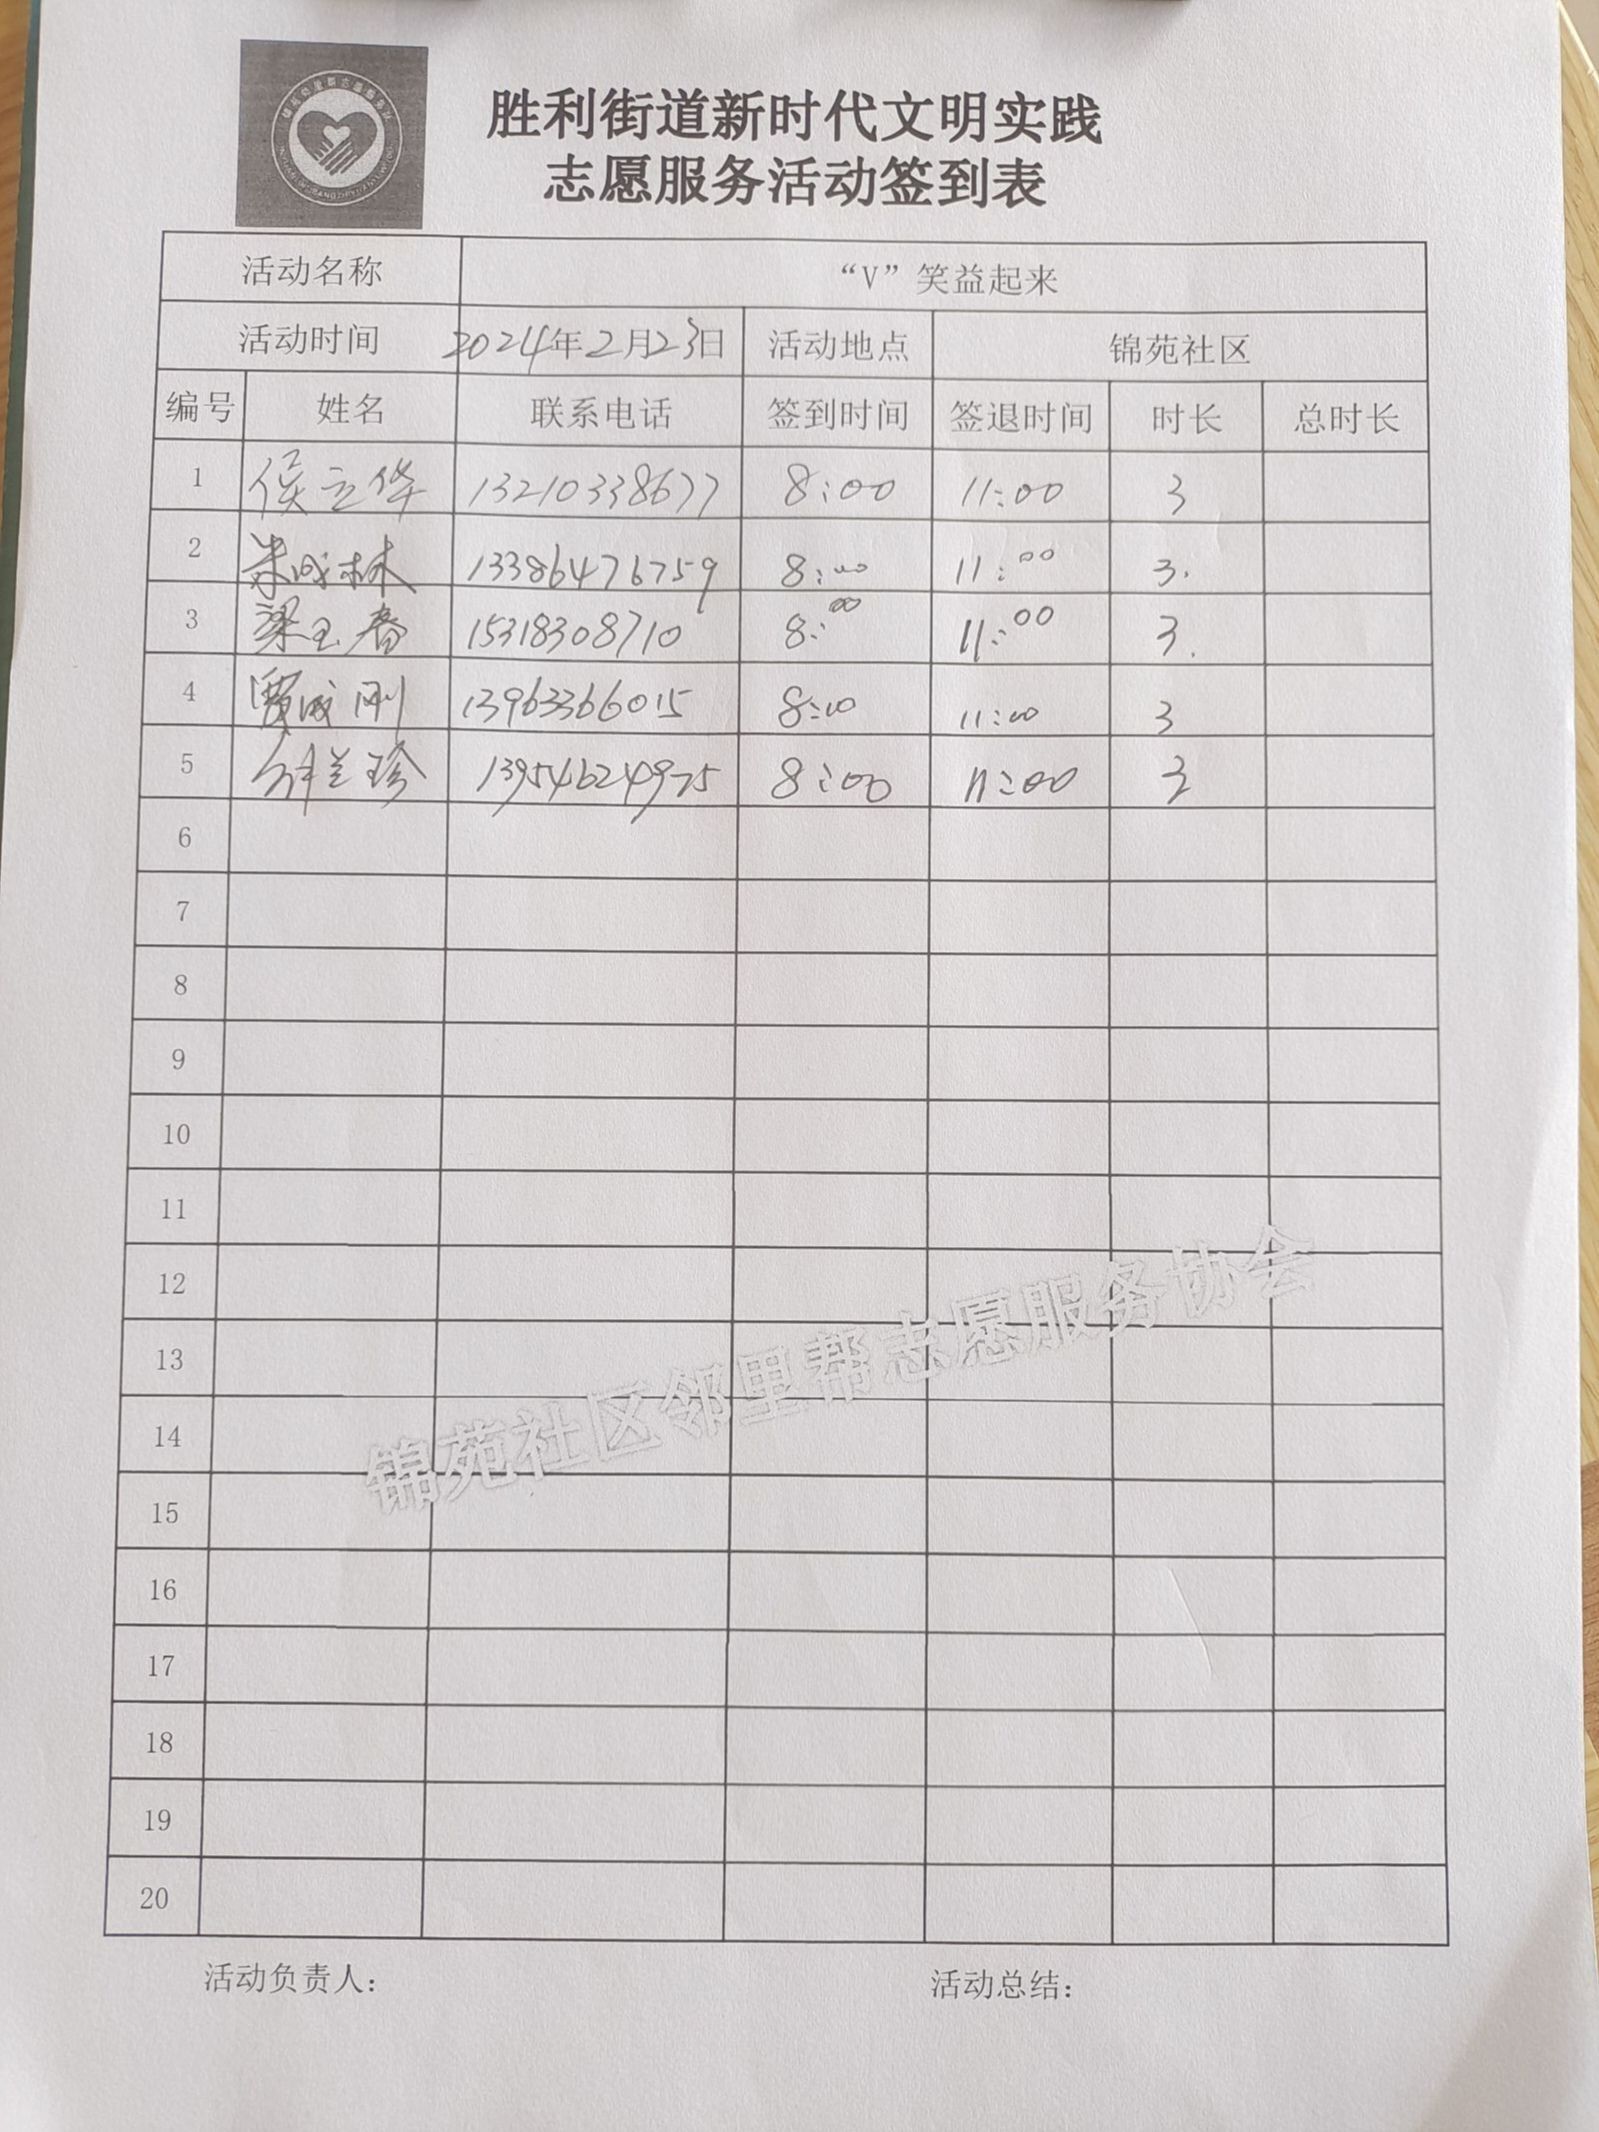 胜利街道新时代文明实践
志愿服务活动签到表
活动名称 “V”笑益起来
活动时间 2024年2月23日 活动地点 锦苑社区
编号 姓名 联系电话 签到时间 签退时间 时长 总时长
1 侯立华 13210338677 8:00 11:00 3
2 朱成林 13386476759 8:00 11:00 3.
3 梁玉春 15318308710 8:00 11:00 3.
4 贾成刚 13963366015 8:00 11:00 3
5 兰珍 13954624975 8:00 11:00 3
6
7
8
9
10
11
12
13
14
15
16
17
18
19
20
锦苑社区邻里帮志愿服务协会
活动负责人: 活动总结: